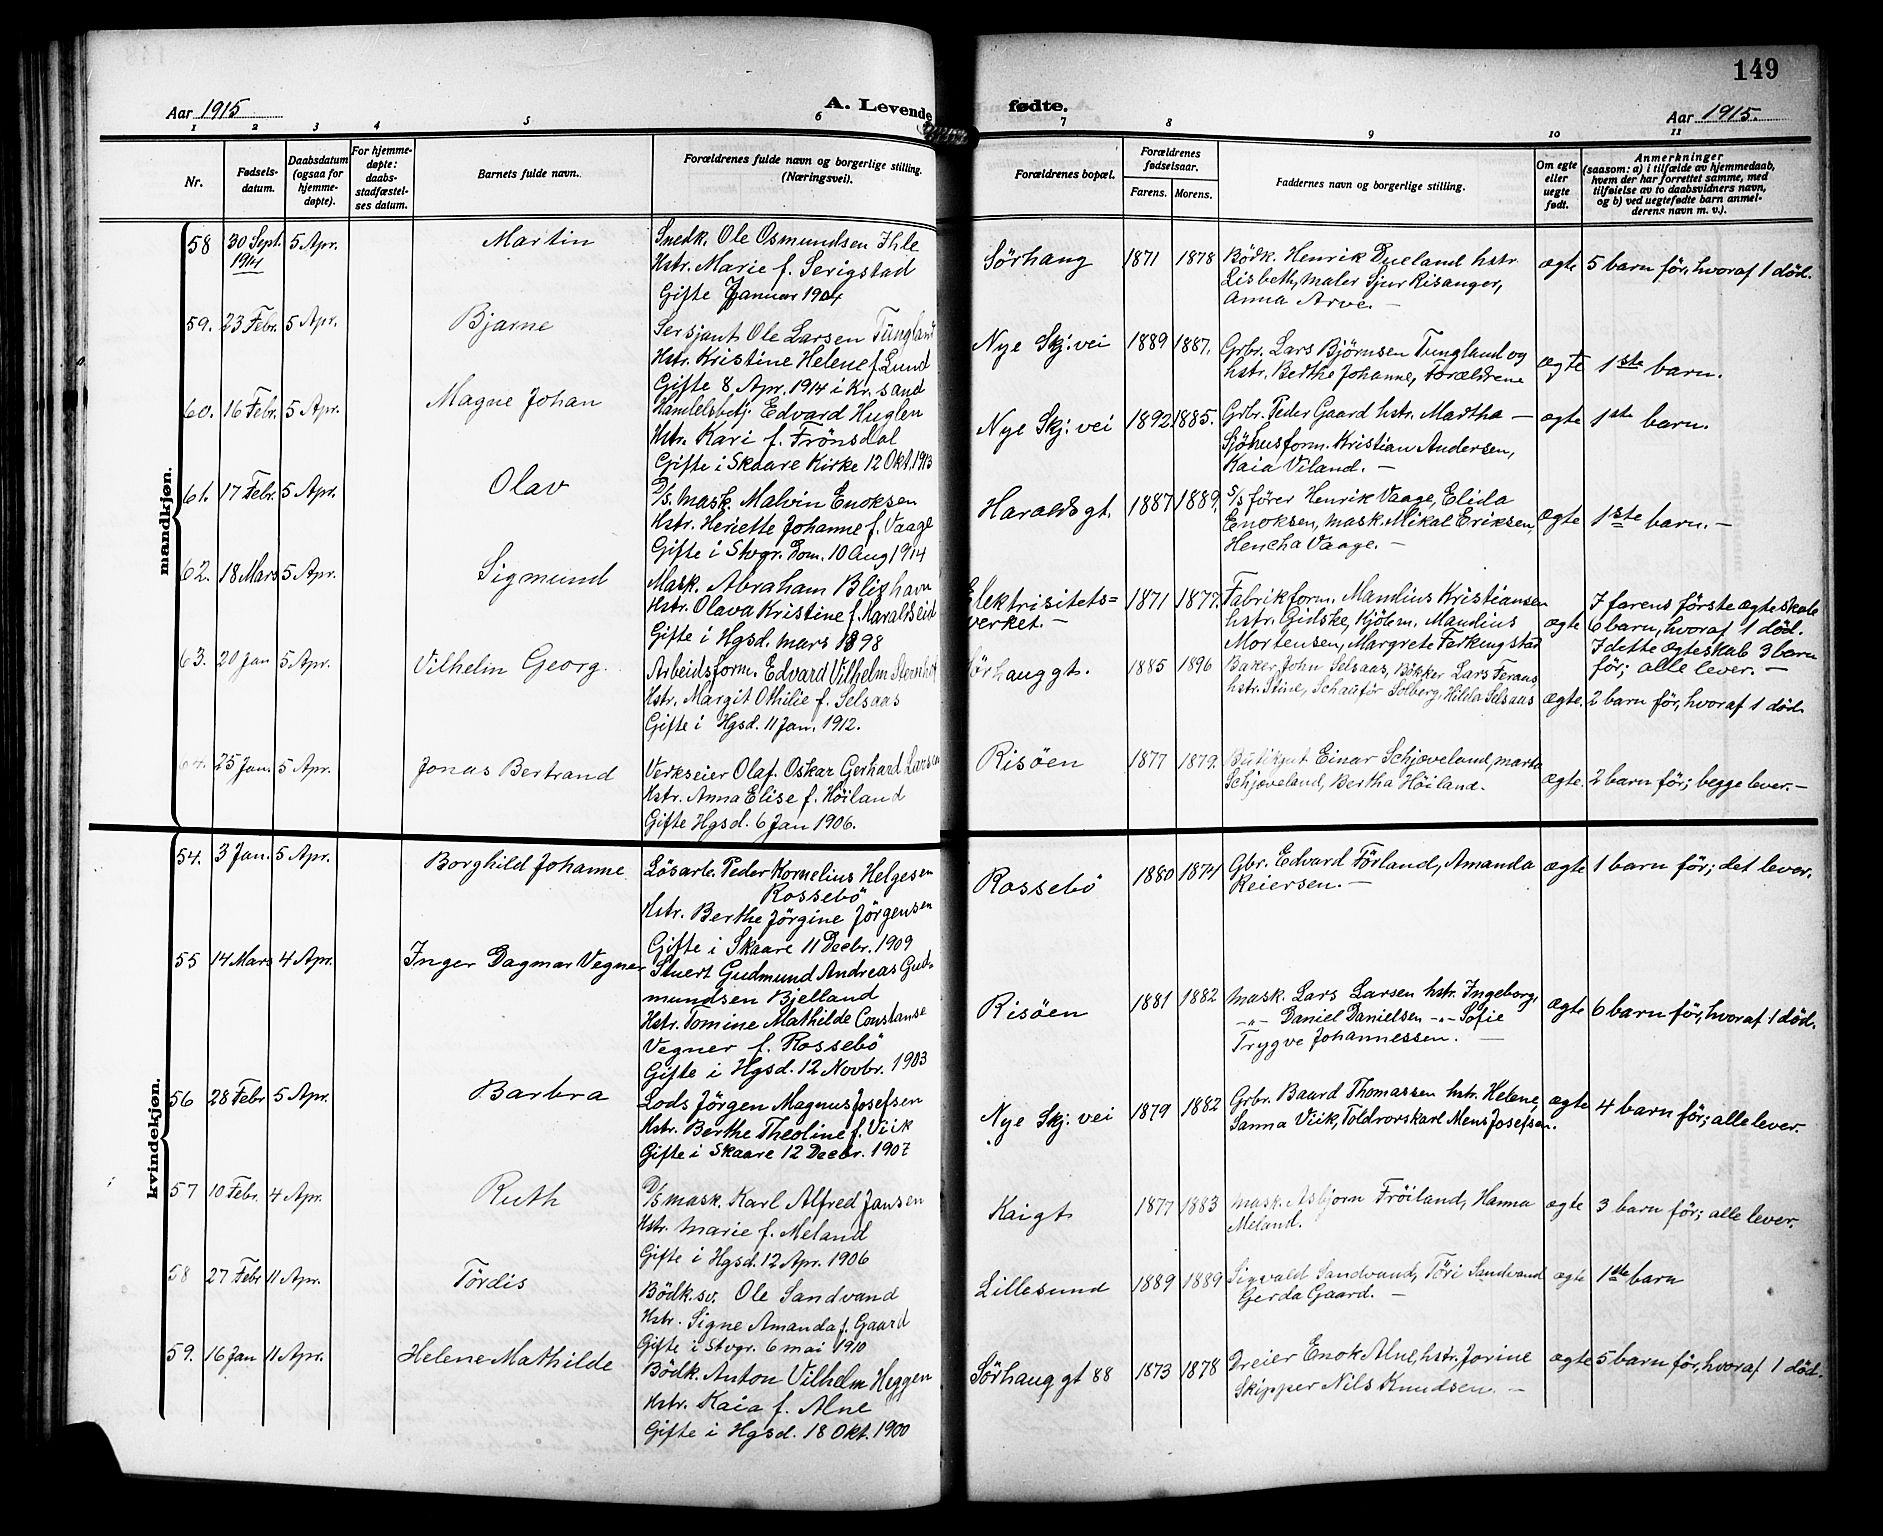 149
Aar 1915
A. Levende fødte.
Aar 1915.
1 2 3 4 5 6 7 8 9 10 11
Nr.
Fødsels-
datum.
Daabsdatum
(ogsaa for
hjemme-
døpte).
For hjemme-
døpte:
daabs-
stadfæstel-
ses datum.
Barnets fulde navn.
Forældrenes fulde navn og borgerlige stilling.
(Næringsvei).
Forældrenes bopæl.
Forældrenes
fødselsaar.
Farens. Morens.
Faddernes navn og borgerlige stilling.
Om egte
eller
uegte
født.
Anmerkninger
(saasom: a) i tilfælde av hjemmedaab,
hvem der har forrettet samme, med
tilføielse av to daabsvidners navn,
og b) ved uegtefødte barn anmel-
derens navn m. v.).
mandkjøn.
58 30 Sept. 1914 5 Apr. Martin
Snedk. Ole Osmundsen Ihle
Hstr. Marie f. Serigstad
Gifte Januar 1904
Sørhaug 1871 1878
Bødk. Henrik Dueland hstr
Lisbeth, maler Sjur Risanger,
Anna Arve. —
ægte 5 barn før, hvoraf 1 død.
59. 23 Febr. 5 Apr. Bjarne
Sersjant Ole Larsen Tungland
Hstr. Kristine Helene f. Lund
Gifte 8 Apr. 1914 i Kr. sand
Nye Skj. vei 1889 1887.
Grbr. Lars Bjørnsen Tungland og
hstr. Berthe Johanne, Forældrene
ægte 1ste barn.
60. 16 Febr. 5 Apr. Magne Johan
Handelsbetj. Edvard Huglen
Hstr. Kari f. Frønsdal
Gifte i Skaare Kirke 12 Okt. 1913
Nye Skj. vei 1892 1885.
Grbr. Peder Gaard hstr. Martha —
Sjøhusform. Kristian Andersen,
Kaia Viland. —
ægte 1ste barn.
61. 17 Febr. 5 Apr. Olav
D/s. mask. Malvin Enoksen
Hstr. Heriette Johanne f. Vaage
Gifte i Stvgr. Dom. 10 Aug 1914
Haralds gt. 1887 1889.
S/s fører Henrik Vaage, Elida
Enoksen, mask. Mikal Eriksen,
Hencha Vaage. —
ægte 1ste barn. —
62. 18 Mars 5 Apr. Sigmund
Mask. Abraham Blixhavn
Hstr. Olava Kristine f. Haraldseid
Gifte i Hgsd. mars 1898
Elektrisitets=
verket. — 1871 1877.
Fabrikform. Mandius Kristiansen
hstr. Gidske, Kjølem. Mandius
Mortensen, Margrete Ferkingstad
ægte
I farens første ægteskab
6 barn, hvoraf 1 død.
I dette ægteskab 3 barn
før; alle lever. —
63. 20 Jan 5 Apr. Vilhelm Georg.
Arbeidsform. Edvard Vilhelm
Hstr. Margit Othilie f. Selsaas
Gifte i Hgsd. 11 Jan. 1912.
Sørhauggt. 1885 1896
Baker John Selsaas, Bøkker Lars Feraas,
hstr. Stine, Schaufør Solberg, Hilda Selsaas
ægte. 2 barn før, hvoraf 1 død.
64. 25 Jan. 5 Apr. Jonas Bertrand
Verkseier Olaf Oskar Gerhard Larsen
Hstr. Anna Elise f. Høiland
Gifte Hgsd. 6 Jan 1906.
Risøen 1877 1879.
Einar Schjøveland, marta
Schjøveland, Bertha Høiland.
ægte. 2 barn før; begge lever. —
kvindekjøn.
54. 3 Jan. 5 Apr. Borghild Johanne
Løsarb. Peder Kornelius Helgesen
Rossebø
Hstr. Berthe Jørgine Jørgensen
Gifte i Skaare 11 Decbr. 1909
Rossebø 1880 1874
Gbr. Edvard Førland, Amanda
Reiersen. —
ægte 1 barn før; det lever.
55 14 Mars 4 Apr. Inger Dagmar Vegner
Stuert Gudmund Andreas Gud-
mundsen Bjelland
Hstr. Tomine Mathilde Constanse
Vegner f. Rossebø
Gifte i Hgsd. 12 Novbr. 1903
Risøen 1881 1882
Mask. Lars Larsen hstr. Ingeborg,
—"— Daniel Danielsen —"— Sofie
Trygve Johannessen. —
ægte 6 barn før, hvoraf 1 død.
56 28 Febr 5 Apr. Barbra
Lods Jørgen Magnus Josefsen
Hstr. Berthe Theoline f. Viik
Gifte i Skaare 12 Decbr. 1907
Nye Skj. vei 1879 1882
Grbr. Baard Thomassen hstr. Helene,
Sanna Viik, Toldrorskarl Mens Josefsen.
ægte 4 barn før; alle lever.
57 10 Febr. 4 Apr. Ruth
D/s mask. Karl Alfred Jansen
Hstr. Marie f. Meland
Gifte i Hgsd. 12 Apr. 1906
Kaigt 1877 1883
mask. Asbjørn Frøiland, Hanna
Meland.
ægte 3 barn før; alle lever.
58 27 Febr 11 Apr. Tordis
Bødk. sv. Ole Sandvand
Hstr. Signe Amanda f. Gaard
Gifte i Stvgr. 6 mai 1910
Lillesund 1889 1889
Sigvald Sandvand, Tøri Sandvand
Gerda Gaard. —
ægte 1ste barn
59. 16 Jan 11 Apr. Helene Mathilde
Bødk. Anton Vilhelm Heggen
Hstr. Kaia f. Alne
Gifte i Hgsd. 18 Okt. 1900
Sørhaug gt 88 1873 1878
Dreier Enok Alne, hstr. Jorine
Skipper Nils Knudsen. —
ægte 5 barn før, hvoraf 1 død.